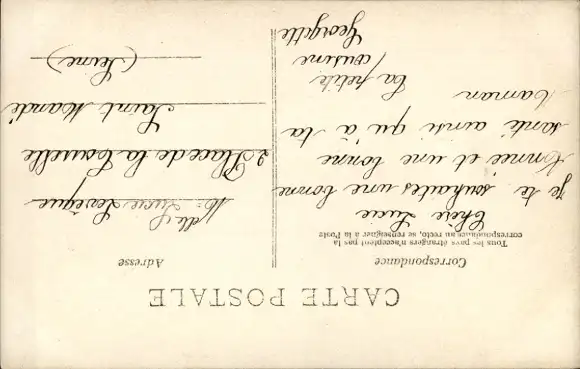 CARTE POSTALE
Correspondance
Tous les pays étrangers n'acceptent pas la
correspondance au recto, se renseigner à la Poste
Chère Lucie
je te souhaites une bonne
année et une bonne
santé ainsi qu'à ta
Maman
La petite
cousine
Georgette
Adresse
Mdlle Lucie Levêque
2 Place de la Tourelle
Saint Mandé
(Seine)